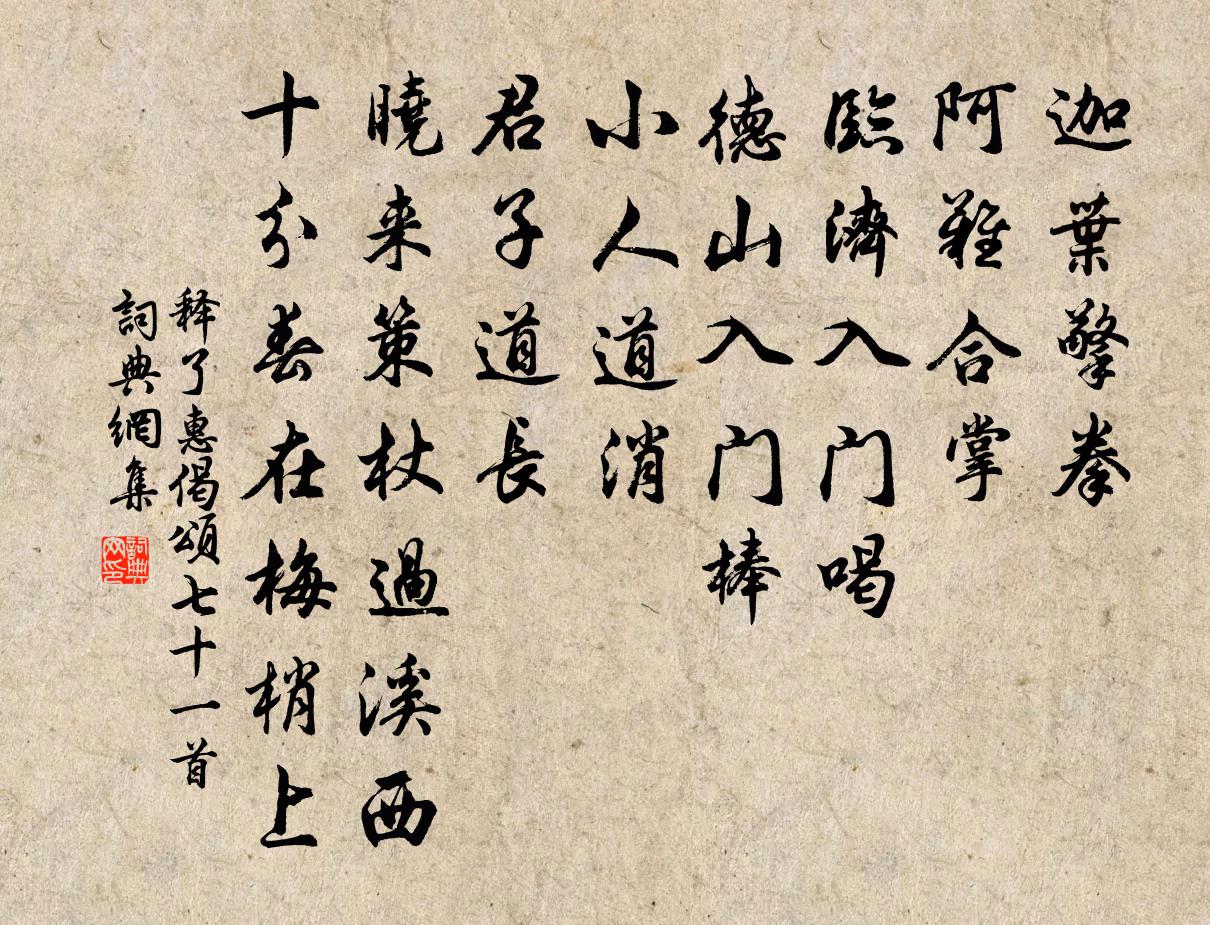 迦葉擎拳
阿難合掌
臨濟入门喝
德山入门棒
小人道消
君子道長
曉来策杖過溪西
十分春在梅梢上
释了惠偈頌七十一首
詞典網集
詞典网印